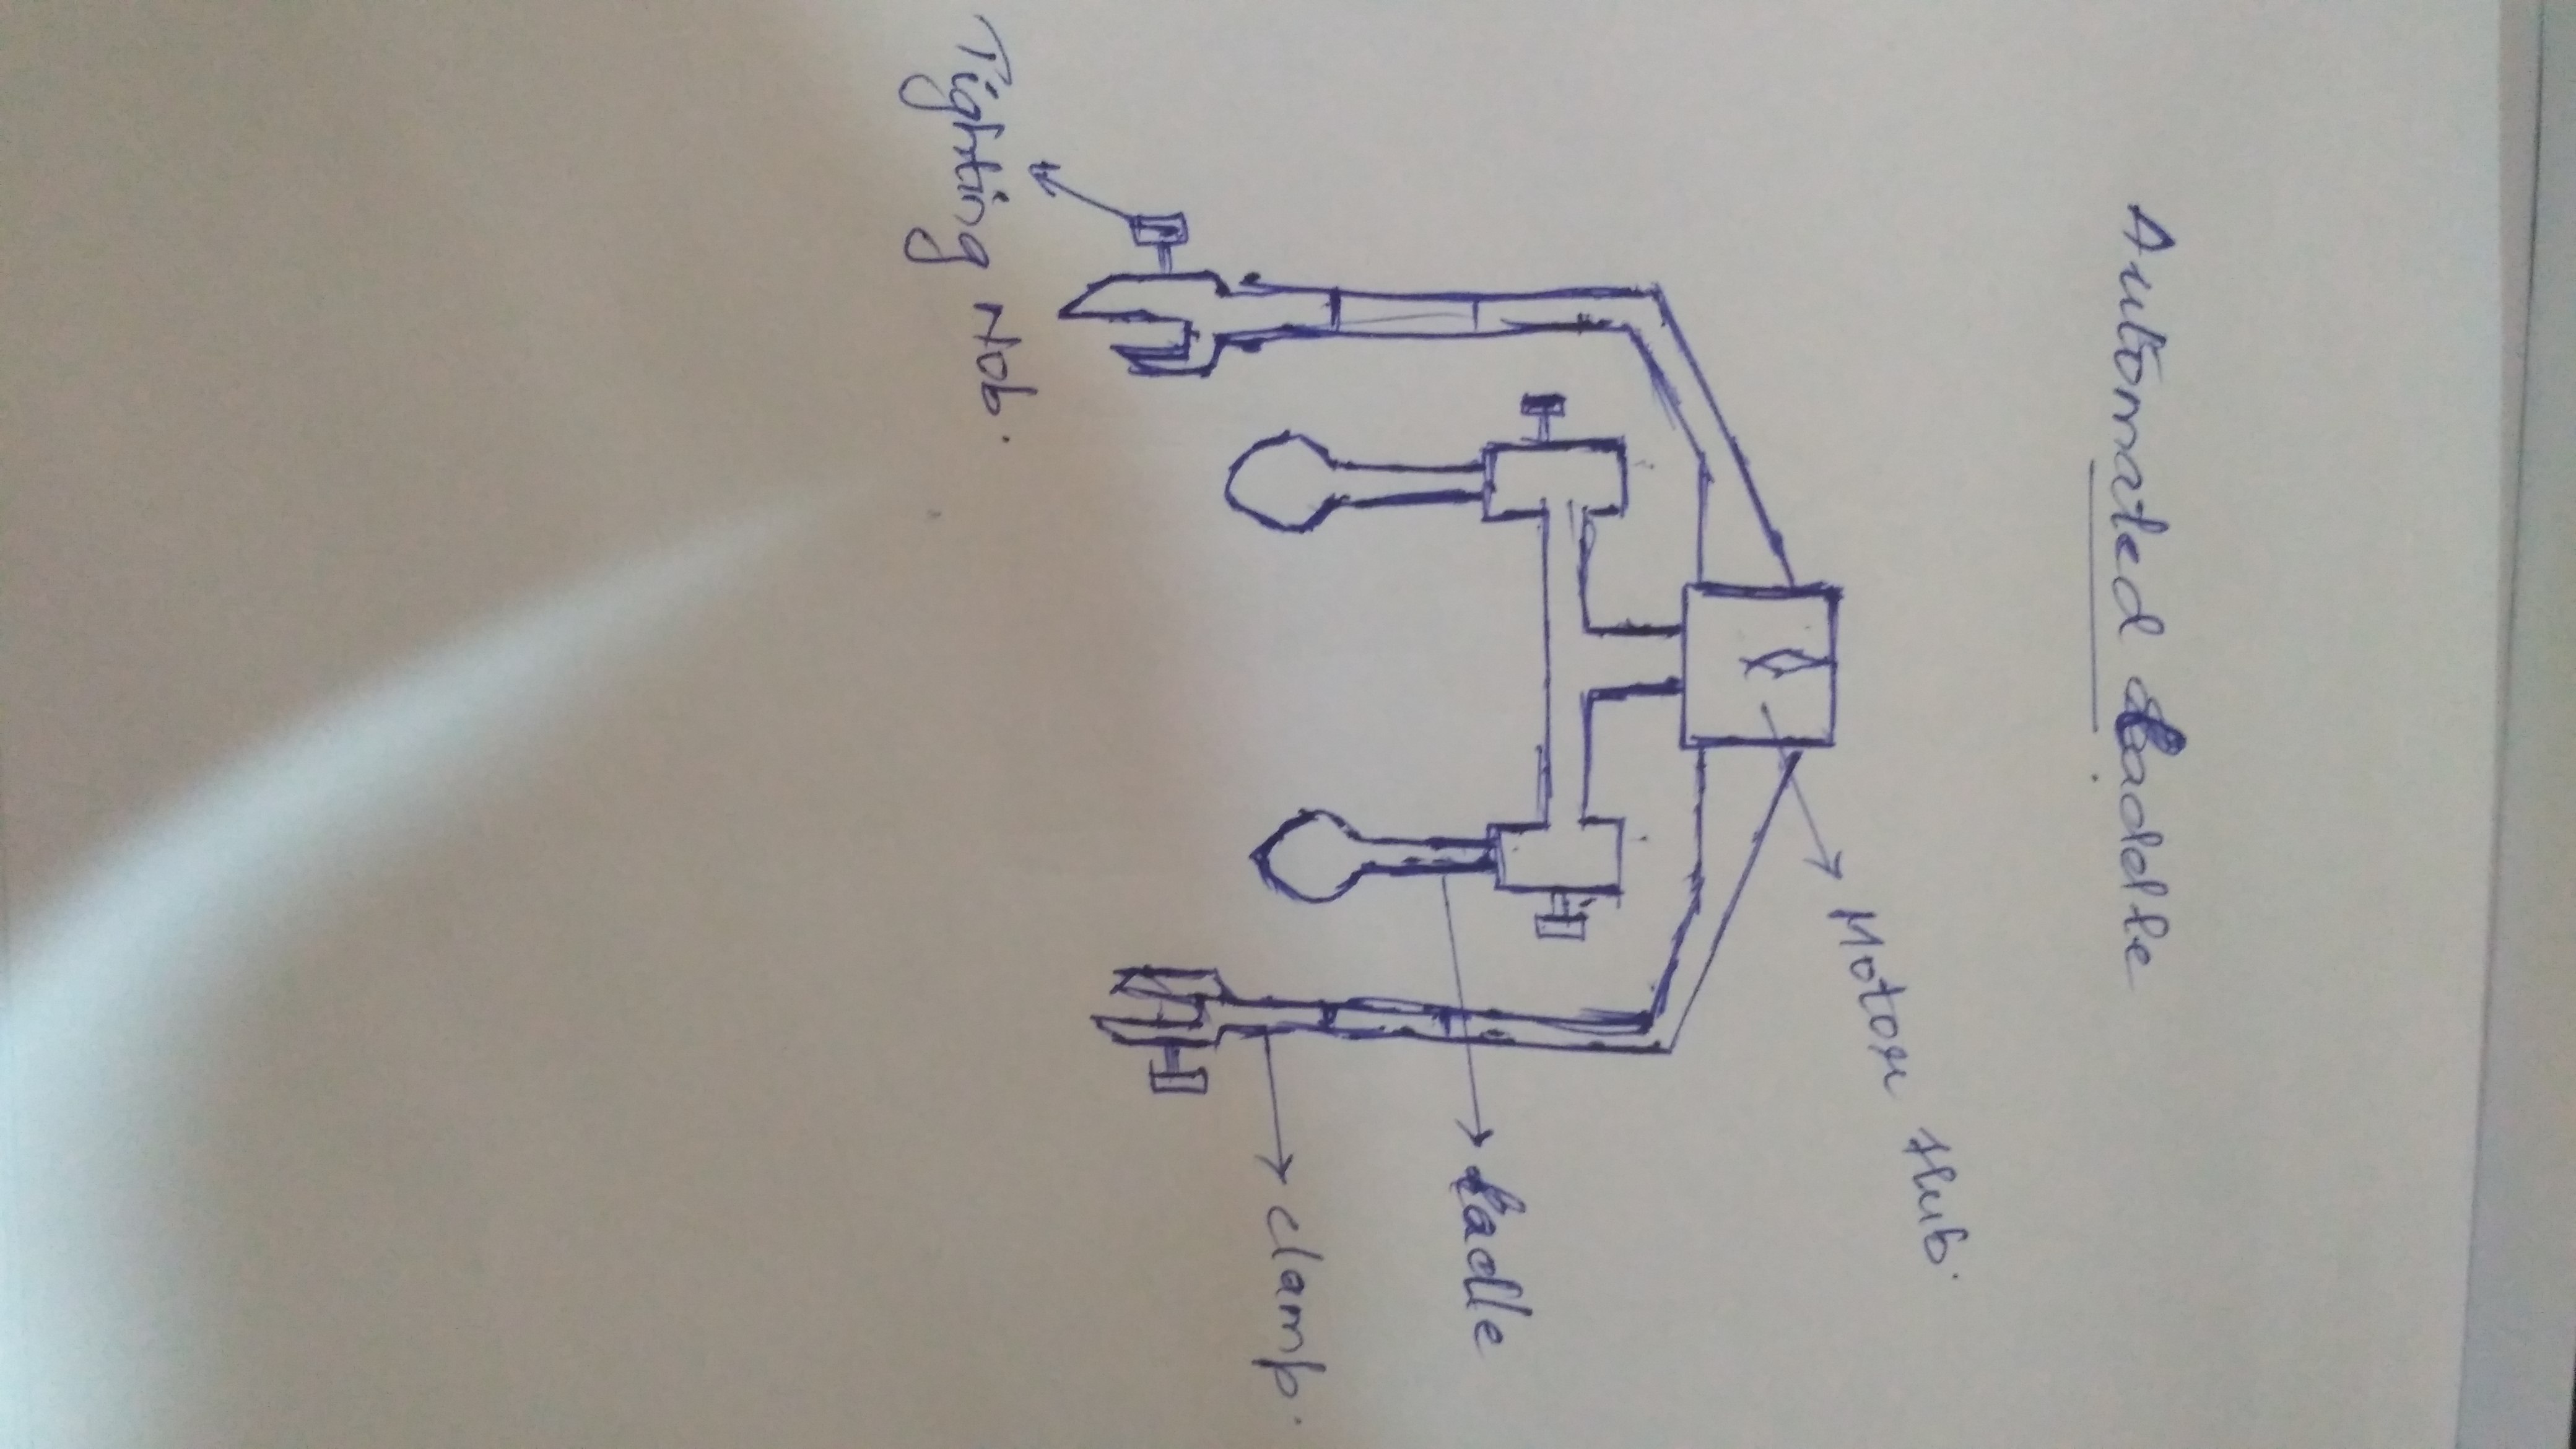 Automated Ladle
Motor Hub.
Ladle
clamp.
Tighting Nob.